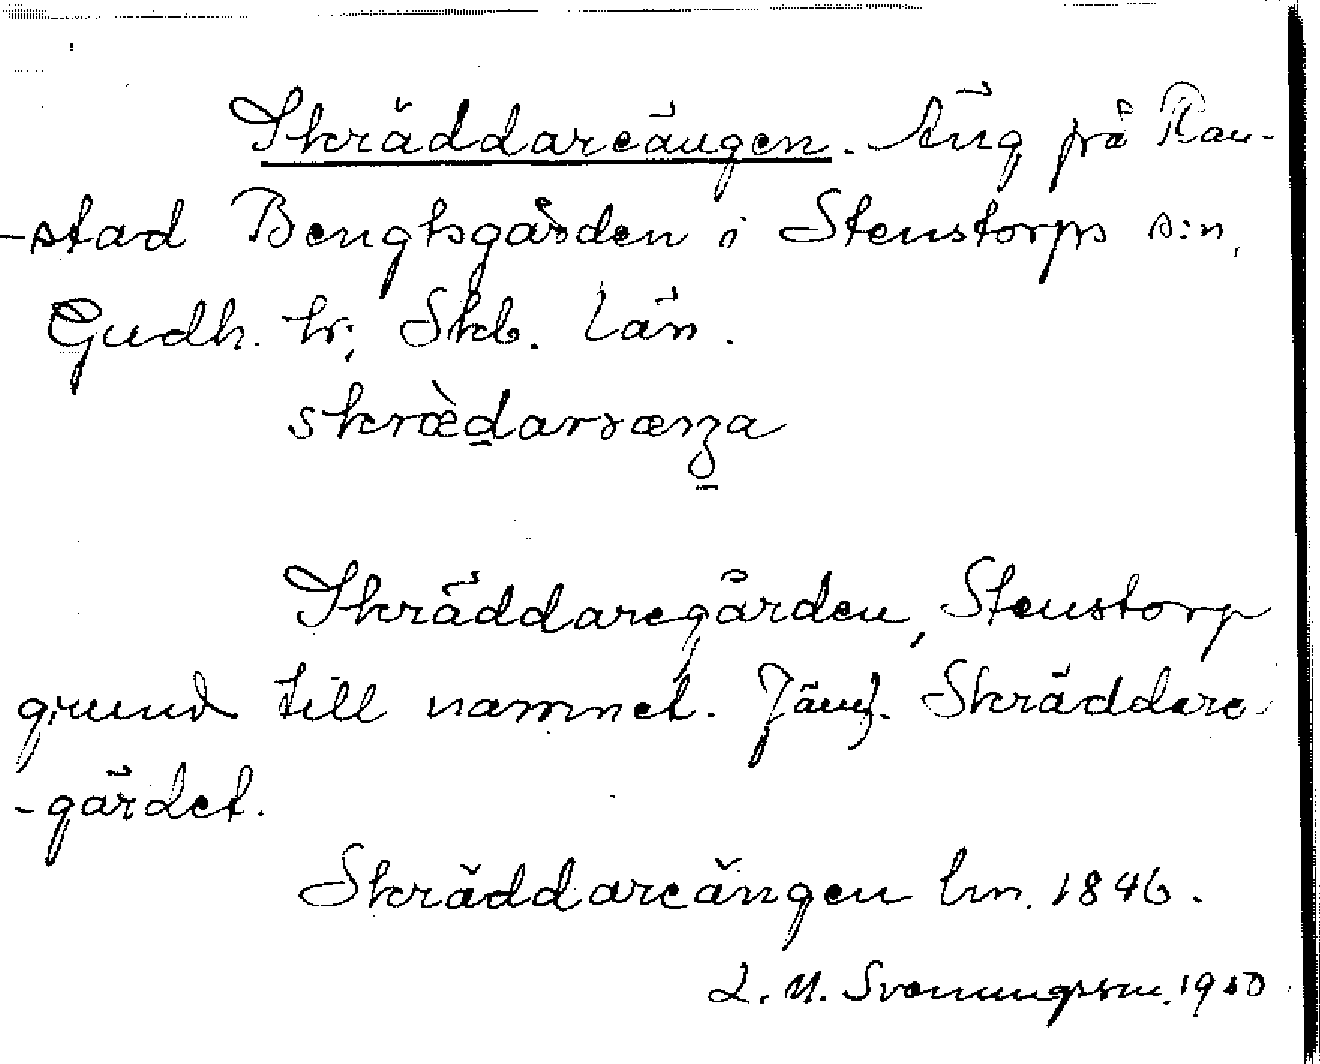 Skräddareängen. Äng på Ran-
-stad Bengtsgården i Stenstorps s:n,
Gudh. hr; Skb. län.
Skräddaregården, Stenstorp
grund till namnet. Jämf. Skräddare-
-gärdet.
Skräddareängen lm. 1846.